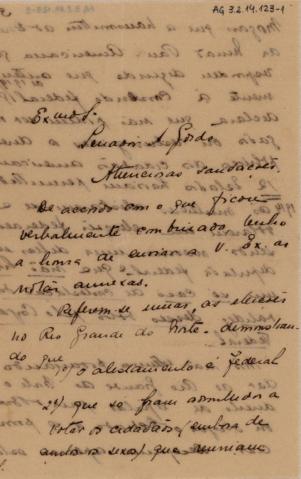 AG 3.2.14.123-1
Exmo Sr.
Senador A Gordo
Attenciosas saudações.
De accordo com o que ficou
verbalmente combinado, tenho
a honra de enviar a V. Ex. as
notas annexas.
Referem-se umas, as eleições
no Rio Grande do Norte, demonstran-
do que
1º) o alistamento é federal
2º) que se foram admittidos a
votar os cidadãos (embora de
ambos os sexos) que reuniam